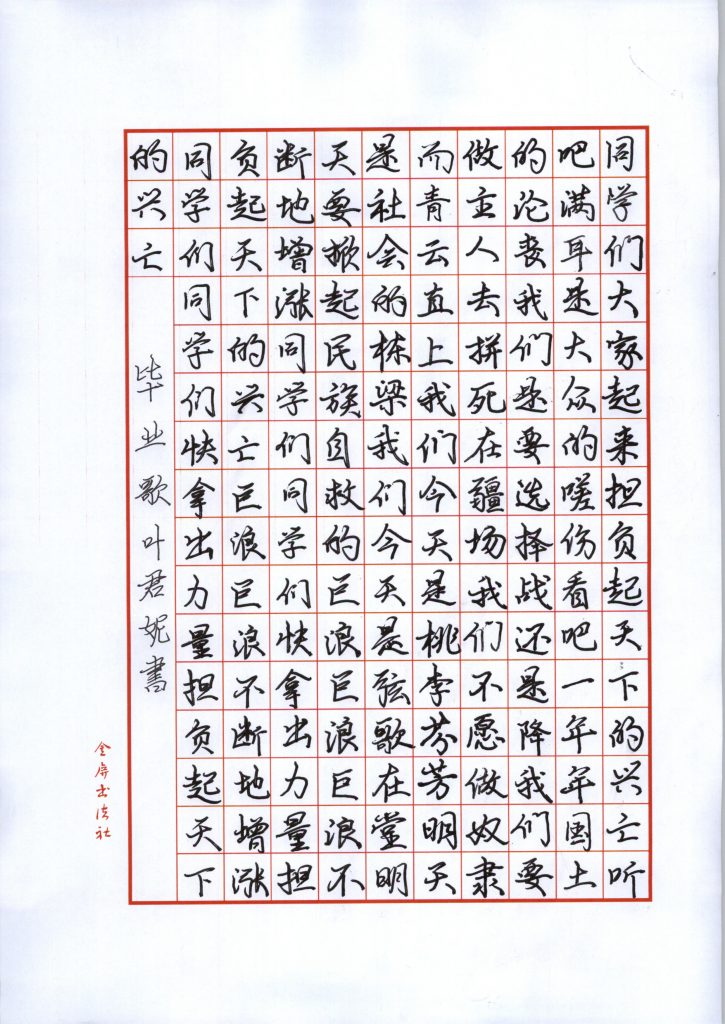 同学们大家起来担负起天下的兴亡听
吧满耳是大众的嗟伤看吧一年年国土
的沦丧我们是要选择战还是降我们要
做主人去拼死在疆场我们不愿做奴隶
而青云直上我们今天是桃李芬芳明天
是社会的栋梁我们今天是弦歌在堂明
天要掀起民族自救的巨浪巨浪巨浪不
断地增涨同学们同学们快拿出力量担
负起天下的兴亡巨浪巨浪不断地增涨
同学们同学们快拿出力量担负起天下
的兴亡
毕业歌叶君妮书
金屏出法社